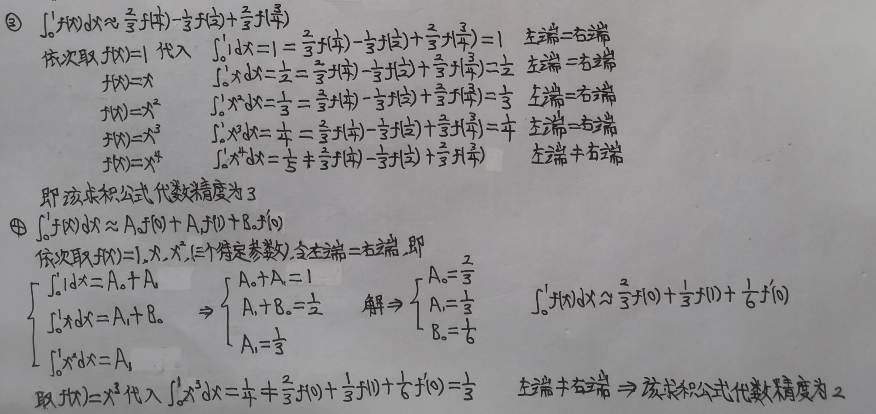 ③ ∫₀¹f(x)dx≈2/3f(1/4)-1/3f(1/2)+2/3f(3/4)
依次取f(x)=1代入 ∫₀¹1dx=1=2/3f(1/4)-1/3f(1/2)+2/3f(3/4)=1 左端=右端
f(x)=x ∫₀¹xdx=1/2=2/3f(1/4)-1/3f(1/2)+2/3f(3/4)=1/2 左端=右端
f(x)=x² ∫₀¹x²dx=1/3=2/3f(1/4)-1/3f(1/2)+2/3f(3/4)=1/3 左端=右端
f(x)=x³ ∫₀¹x³dx=1/4=2/3f(1/4)-1/3f(1/2)+2/3f(3/4)=1/4 左端=右端
f(x)=x⁴ ∫₀¹x⁴dx=1/5≠2/3f(1/4)-1/3f(1/2)+2/3f(3/4) 左端≠右端
即该求积公式代数精度为3
④ ∫₀¹f(x)dx≈A₀f(0)+A₁f(1)+B₀f'(0)
依次取f(x)=1,x,x²,(三个待定参数),令左端=右端,即
{ ∫₀¹1dx=A₀+A₁ ⇒ { A₀+A₁=1 解⇒ { A₀=2/3
∫₀¹xdx=A₁+B₀ A₁+B₀=1/2 A₁=1/3 ∫₀¹f(x)dx≈2/3f(0)+1/3f(1)+1/6f'(0)
∫₀¹x²dx=A₁ A₁=1/3 B₀=1/6
取f(x)=x³代入∫₀¹x³dx=1/4≠2/3f(0)+1/3f(1)+1/6f'(0)=1/3 左端≠右端⇒该求积公式代数精度为2